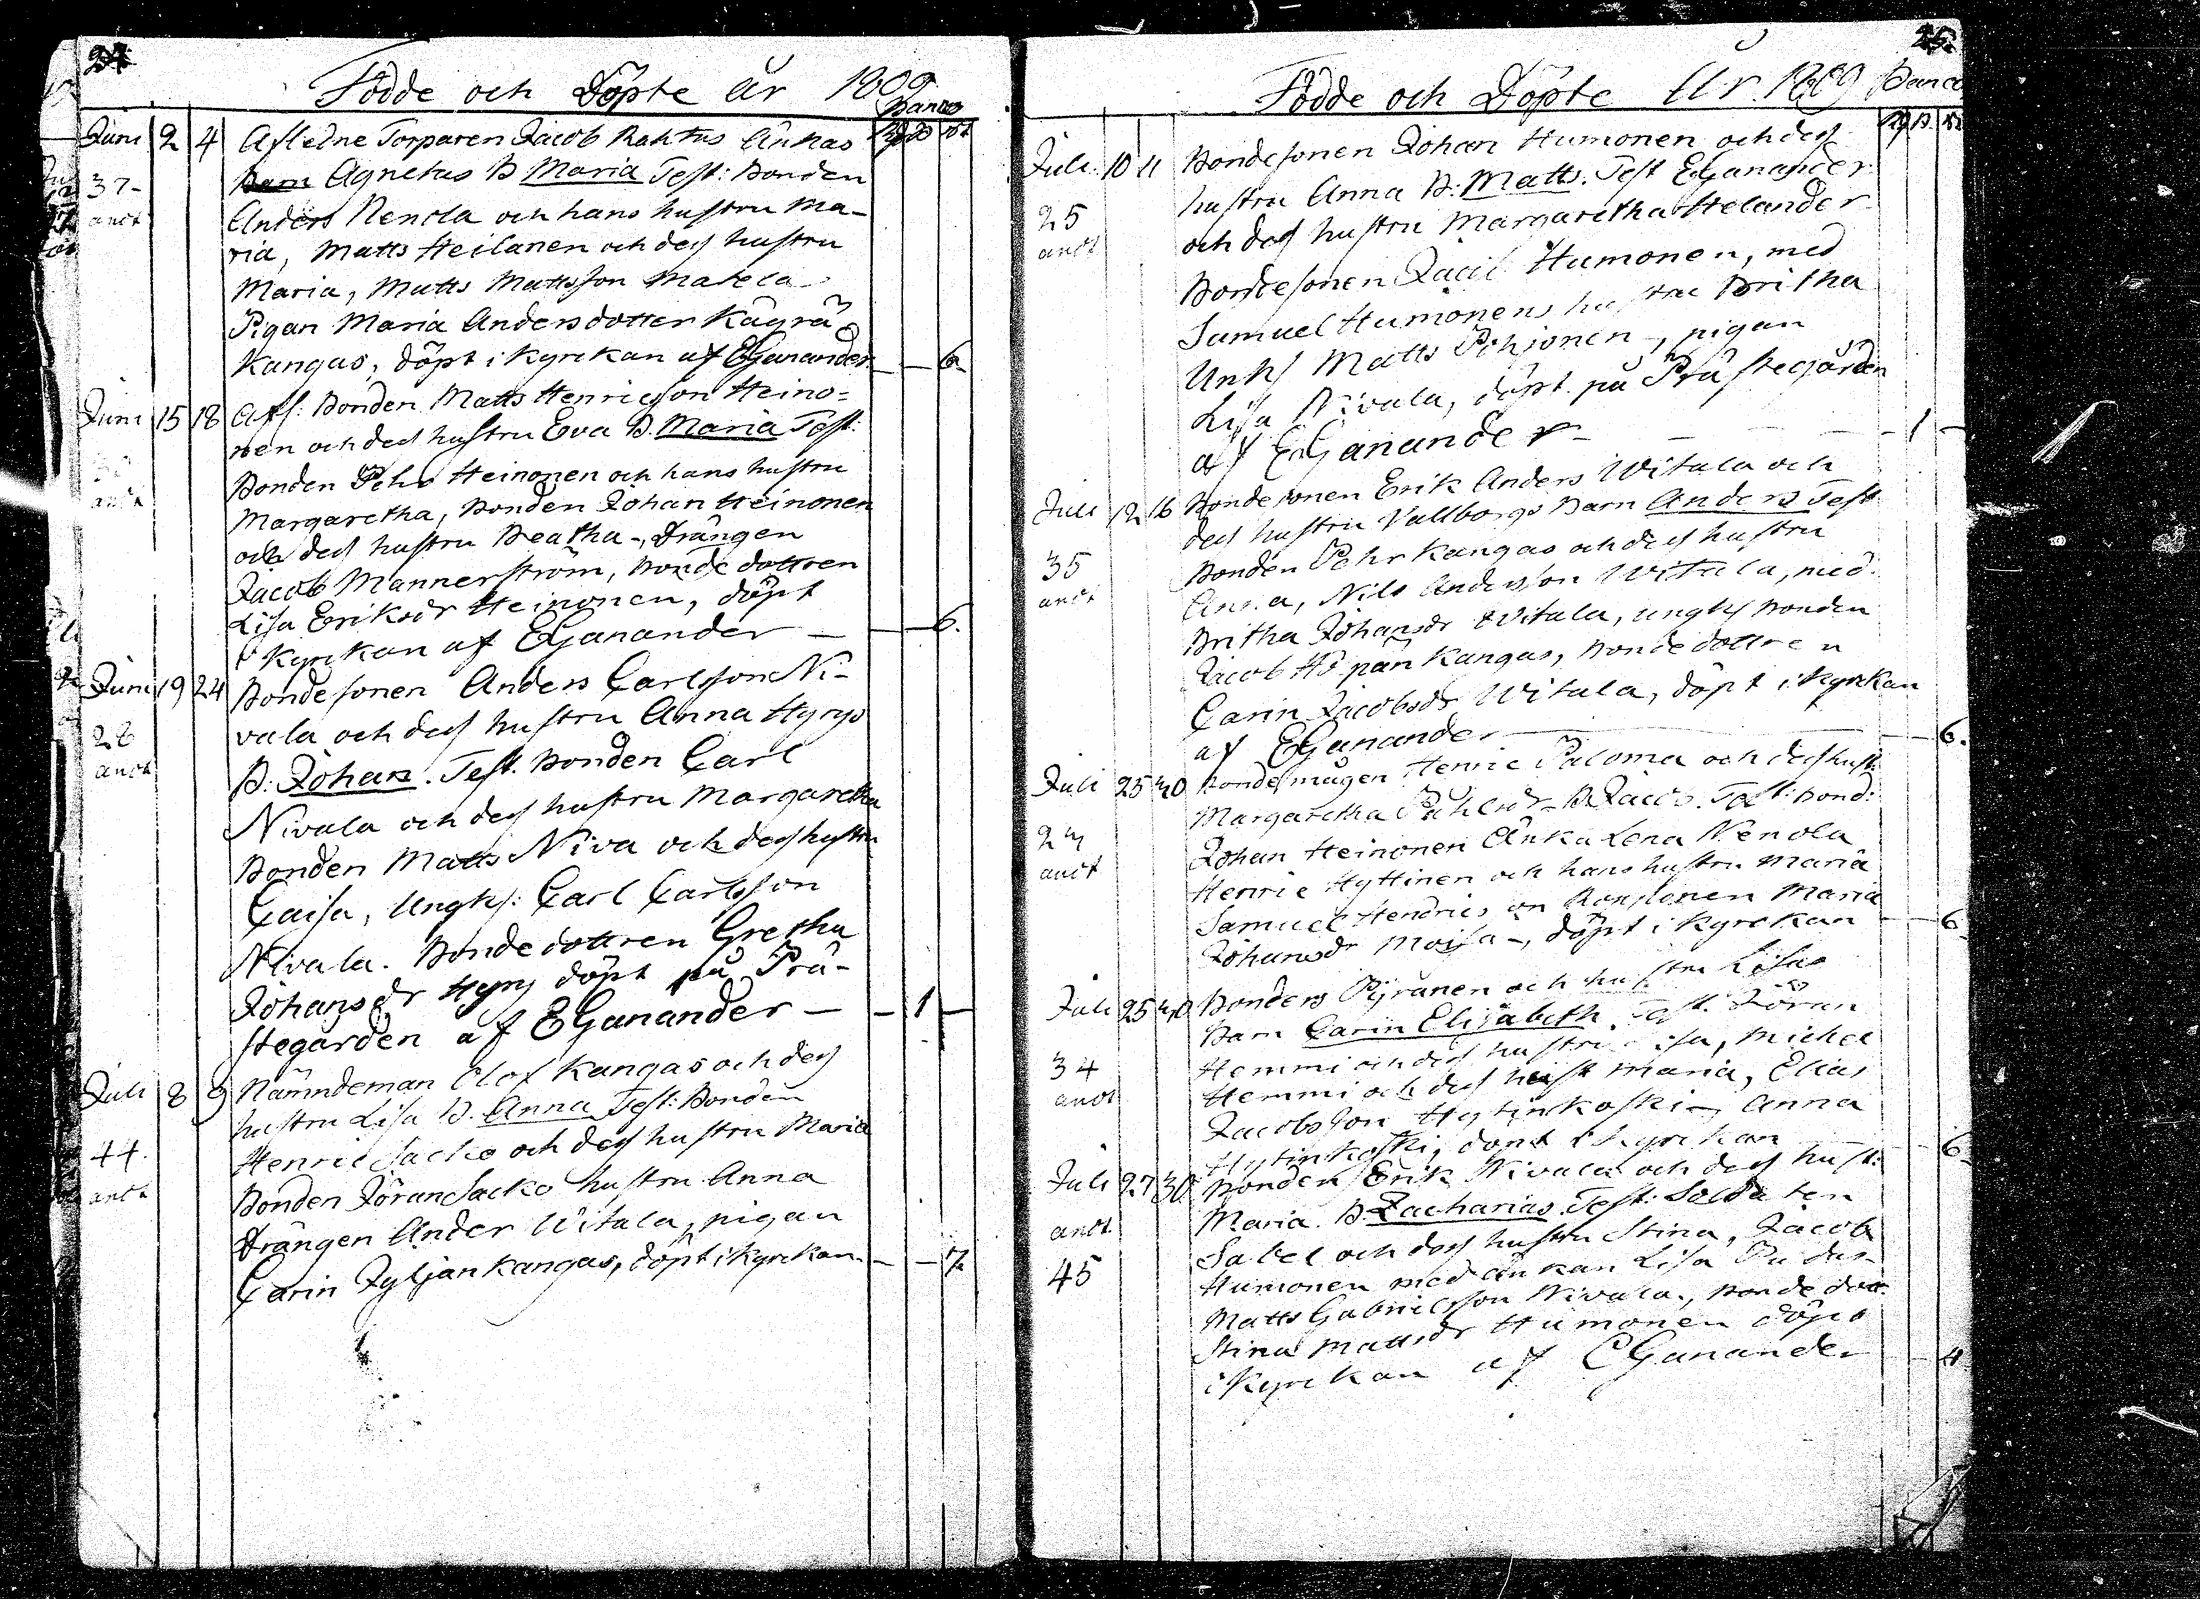 24
Födde och Döpte år 1809
Banco
Juni 2 4 Afledne Torparen Jacob Rahtus Änkas
37 Barn Agnetas B Maria Test: Bonden
andt Anders Nenola och hans hustru Ma-
ria, Matts Heilanen och dess hustru
Maria, Matts Mattsson Matela
Pigan Maria Andersdotter Kägrä
Kangas, döpt i kyrckan af EGanander — — 6
Juni 15 18 Afs: Bonden Matts Henricsson Heino=
nen och dess hustru Eva B. Maria Test:
Bonden Pehr Heinonen och hans hustru
andt Margaretha, Bonden Johan Heinonen
och dess hustru Beatha, Drängen
Jacob Mannerström, Bonde dottren
Lisa Eriksdr Heinonen, döpt
i Kyrckan af EGanander — — 6.
Juni 19 24 Bondesonen Anders Carlsson Ni-
vala och dess hustru Anna Hyrys
28 B: Johan. Test. Bonden Carl
andt Nivala och dess hustru Margaretha
Bonden Matts Niva och dess hustru
Caisa, Ungks: Carl Carlsson
Nivala. Bondedottren Gretha
Johansdr Hyry döpt på Prä-
stegården af EGanander — — 1 —
Juli 8 9 Nämndeman Olof Kangas och dess
hustru Lisa B. Anna Test: Bonden
44. Henric Sacko och dess hustru Maria
andt Bonden Jöran Sacko hustru Anna
Drängen Ander Witala, pigan
Carin Jyljänkangas, döpt i kyrckan. — — 7
25
Födde och Döpte År 1809 Banco
Juli 10 11 Bondesonen Johan Humonen och dess
25 hustru Anna B: Matts. Test EGanander
andt och dess hustru Margaretha Helander
Bondesonen Humonen, med
Samuel Humonens hustru Britha
Unks Matts Pohjonen, pigan
Lisa Nivala, döpt på Prästegården
af EGanander — — 1 —
Juli 12 16 Bondesonen Erik Anders Witala och
dess hustru Vallborgs Barn Anders Test
35 Bonden Pehr Kangas och dess hustru
andt Anna, Nils Andersson Witala, med
Britha Johansdr Witala, ungks Bonden
Jacob Kangas, Bondedottren
Carin Jacobsdr Witala, döpt i kyrckan
af EGanander — 6.
Juli 25 30 Bondemågen Henric Paloma och dess hust:
Margaretha B. Jacob. Test: Bond:
24 Johan Heinonen Änka Lena Nenola
andt Henric Hyttinen och hans hustru Maria
Samuel Hendricsson Maria
Johansdr Moisa, döpt i kyrckan — 6
Juli 25 30 Bonders Pyrånen och hustru Lisas
Barn Carin Elisabeth. Test. Jöran
34 Hemmi och dess hustru Lisa, Michel
andt Hemmi och dess hust Maria, Elias
Jacobsson Hytinkoski, Anna
Hytinkoski, döpt i kyrckan — 6
Juli 27 30 Bonden Erik Nivala och dess hust:
Maria. B. Zacharias. Test: Soldaten
andt Sabel och dess hustru Stina, Jacob
45 Humonen med änkan Lisa
Matts Gabrielsson Nivala., Bonde dott.
Stina Mattsdr Humonen döpt
i kyrckan af EGanander — 4